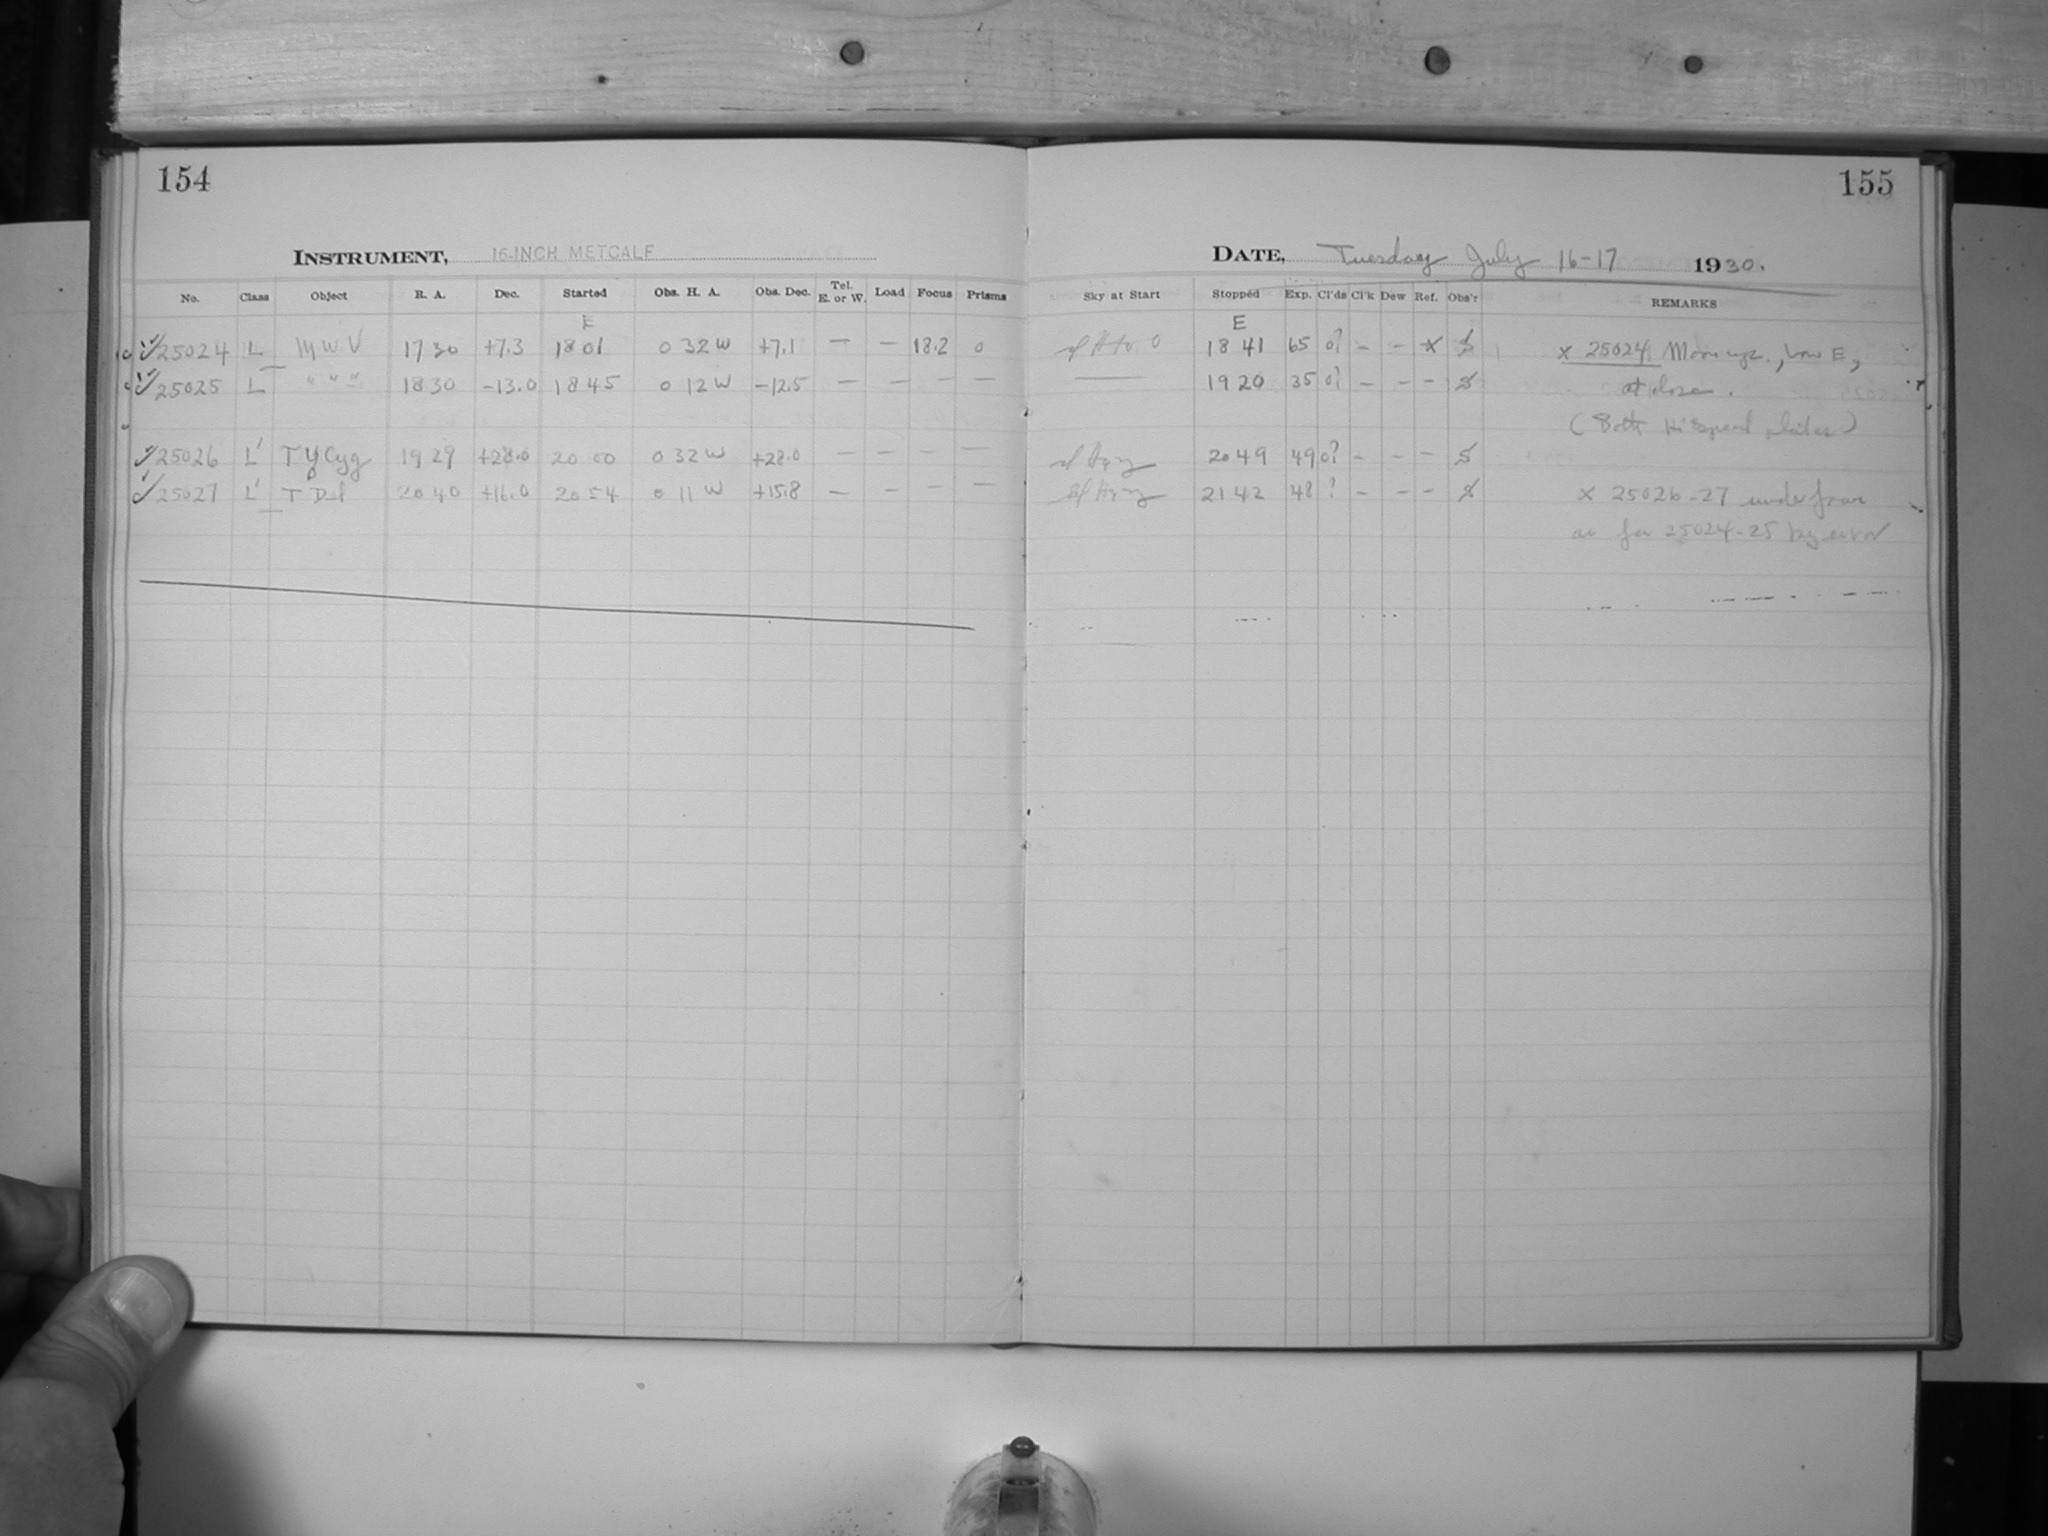 154
155
INSTRUMENT, 16-INCH METCALF
DATE, Tuesday July 16-17 1930.
No. Class Object R. A. Dec. Started Obs. H. A. Obs. Dec. Tel. E. or W. Load Focus Prisms Sky at Start Stopped Exp. Cl'ds Cl'k Dew Ref. Obs'r REMARKS
E E
25024 L MWV 17 30 +7.3 18 01 0 32 W +7.1 — — 18.2 0 18 41 65 0? - - x x 25024 Moon up, low E,
25025 L " " " 18 30 -13.0 18 45 0 12 W -12.5 — — — — —— 19 20 35 0? - - - S at close.
(Both Hi speed plates)
25026 L' TY Cyg 19 29 +28.0 20 00 0 32 W +28.0 — — — — 20 49 49 0? - - - S
25027 L' T Del 20 40 +16.0 20 54 0 11 W +15.8 — — — — 21 42 48 ? - - - S x 25026-27 under
as for 25024-25 by error